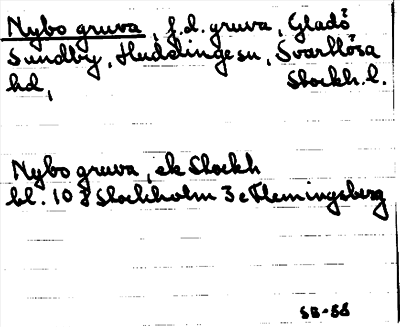 Nybo gruva, f.d. gruva, Gladö
Sundby, Huddinge sn, Svartlösa
hd, Stockh. l.
Nybo gruva, ek Stockh
bl. 10 I Stockholm 3 c Flemingsberg
SB-88